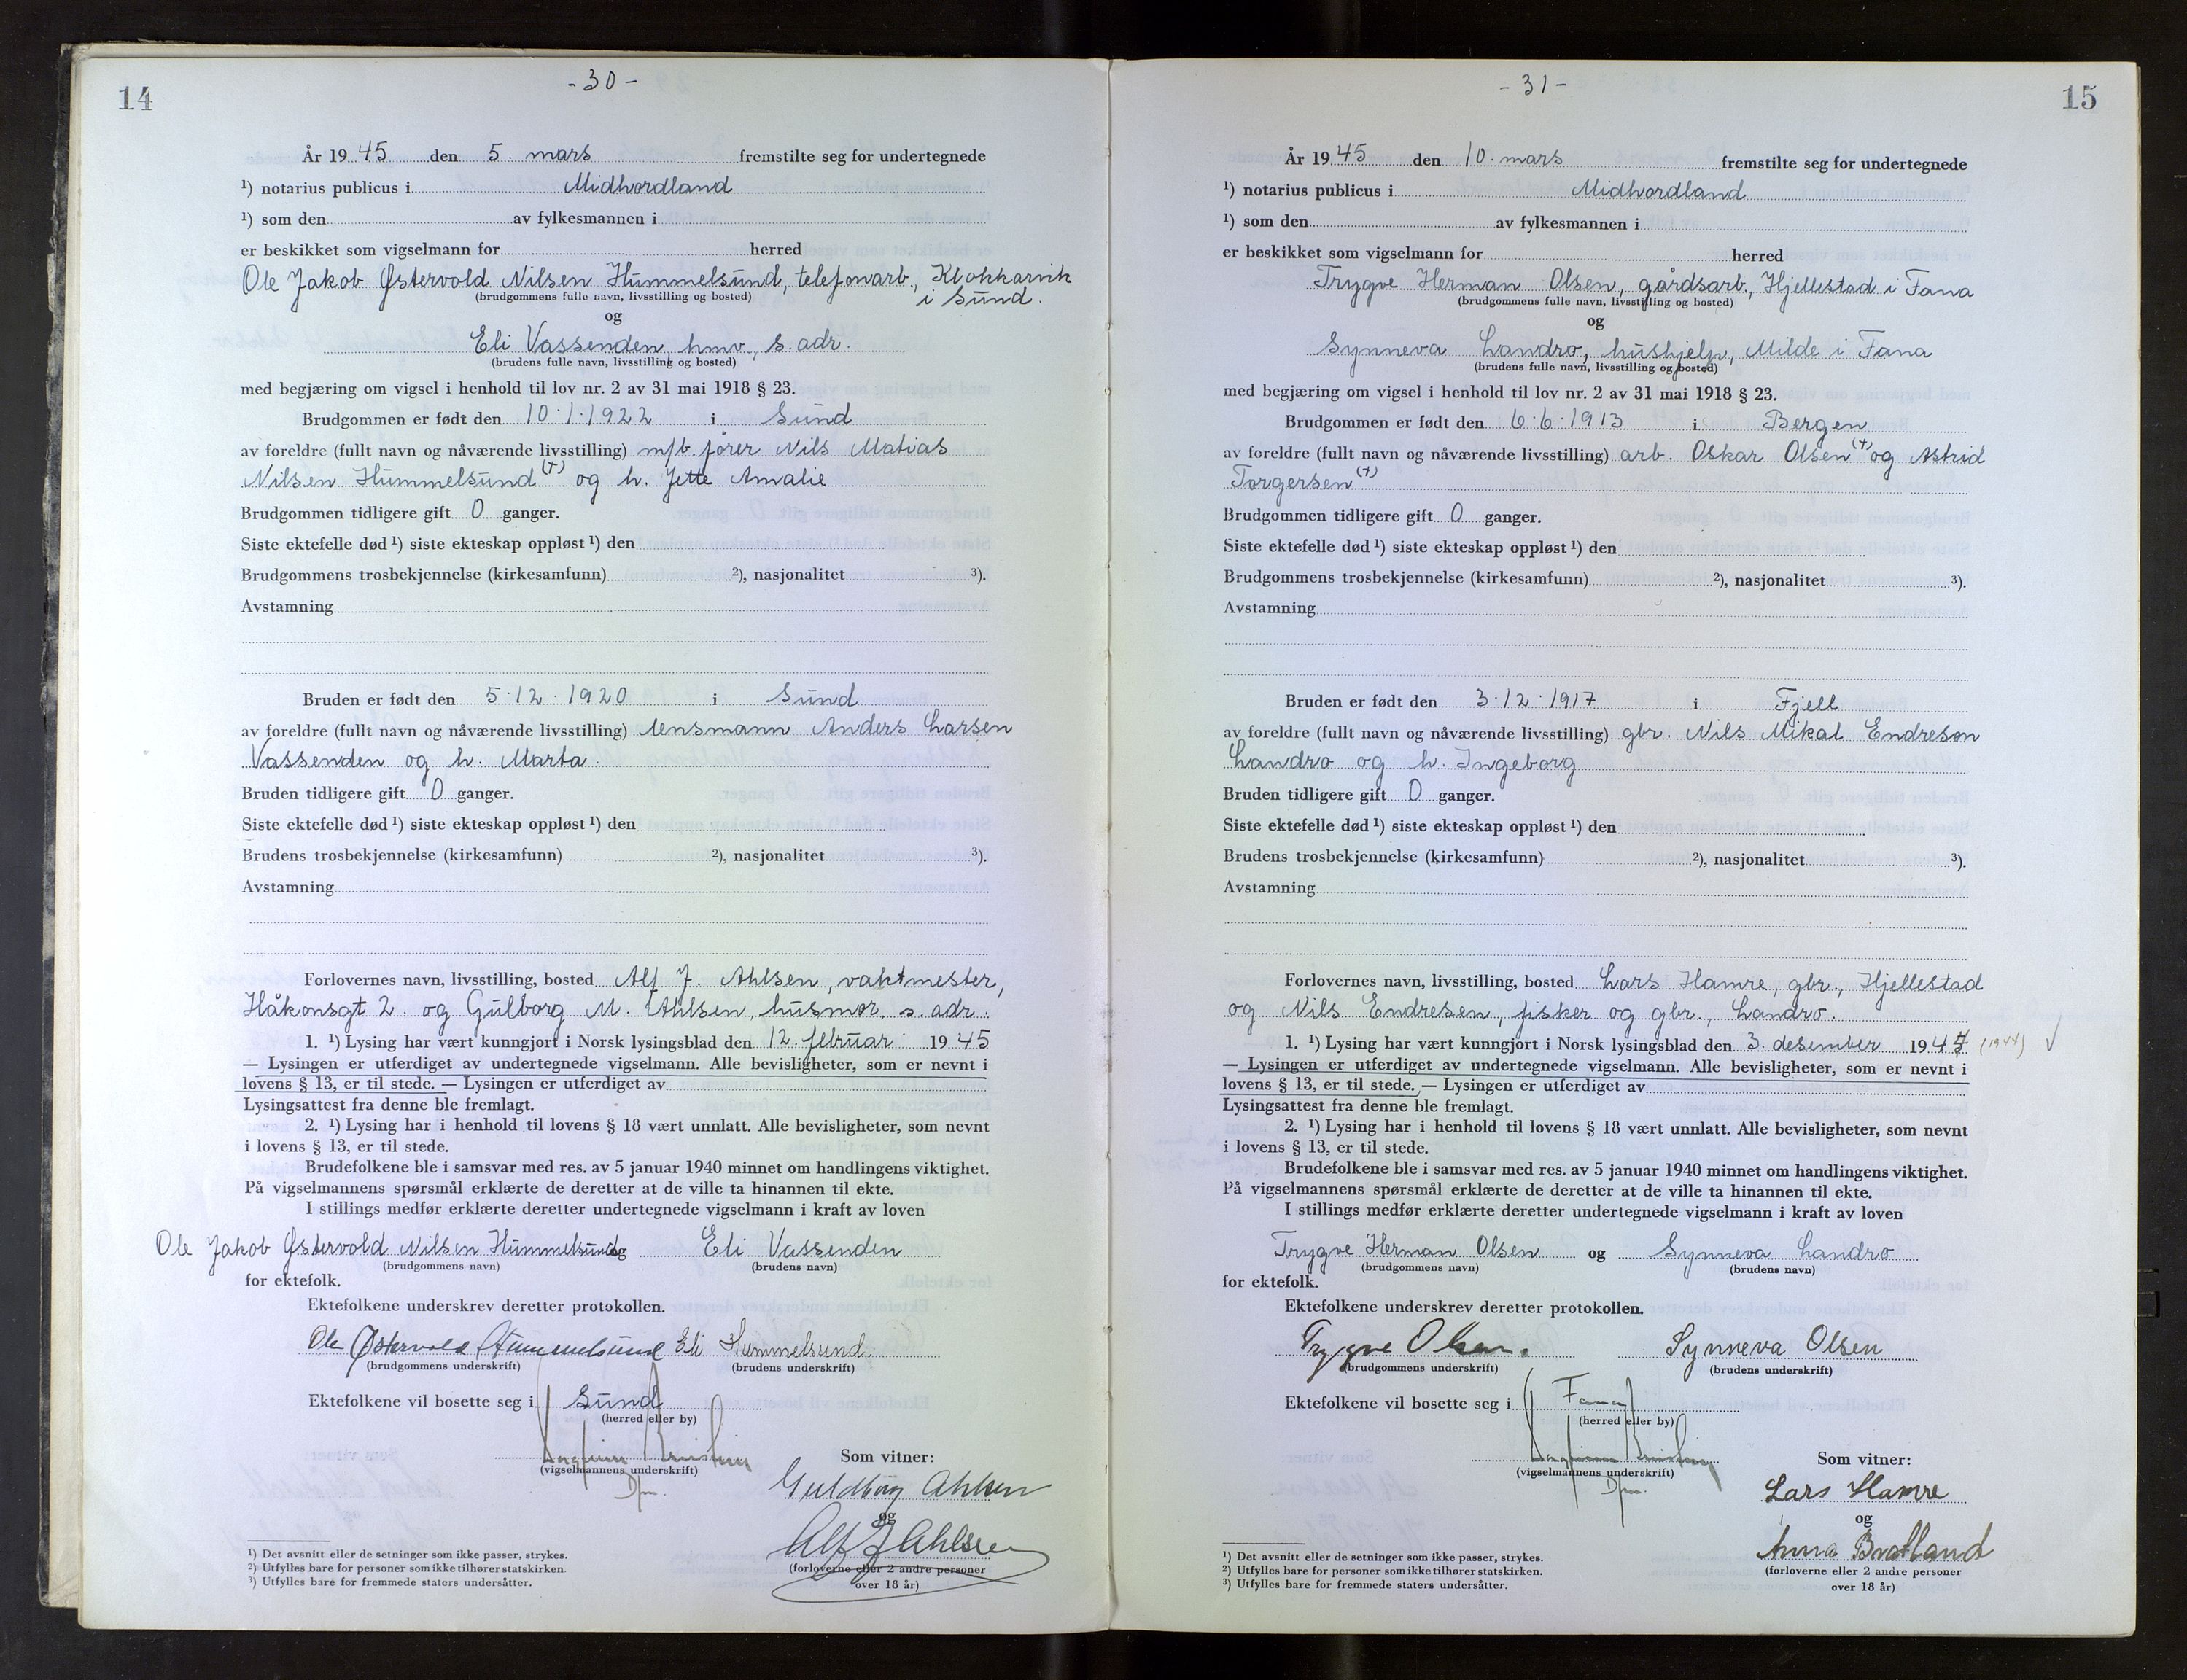 14
- 30 -
År 1945 den 5. mars fremstilte seg for undertegnede
¹) notarius publicus i Midhordland
¹) som den av fylkesmannen i
er beskikket som vigselmann for herred
Ole Jakob Østervold Nilsen Hummelsund, telefonarb., Klokkarvik
i Sund.
(brudgommens fulle navn, livsstilling og bosted)
og
Eli Vassenden, hmv., s. adr.
(brudens fulle navn, livsstilling og bosted)
med begjæring om vigsel i henhold til lov nr. 2 av 31 mai 1918 § 23.
Brudgommen er født den 10.1.1922 i Sund
av foreldre (fullt navn og nåværende livsstilling) m/b. fører Nils Matias
Nilsen Hummelsund (+) og h. Jette Amalie
Brudgommen tidligere gift 0 ganger.
Siste ektefelle død ¹) siste ekteskap oppløst ¹) den
Brudgommens trosbekjennelse (kirkesamfunn) ²), nasjonalitet ³).
Avstamning
Bruden er født den 5.12.1920 i Sund
av foreldre (fullt navn og nåværende livsstilling) lensmann Anders Larsen
Vassenden og h. Marta.
Bruden tidligere gift 0 ganger.
Siste ektefelle død ¹) siste ekteskap oppløst ¹) den
Brudens trosbekjennelse (kirkesamfunn) ²), nasjonalitet ³).
Avstamning
Forlovernes navn, livsstilling, bosted Alf J. Ahlsen, vaktmester,
Håkonsgt 2. og Gulborg M. Ahlsen, husmor, s. adr.
1. ¹) Lysing har vært kunngjort i Norsk lysingsblad den 12. februar 1945
— Lysingen er utferdiget av undertegnede vigselmann. Alle bevisligheter, som er nevnt i
lovens § 13, er til stede. — Lysingen er utferdiget av
Lysingsattest fra denne ble fremlagt.
2. ¹) Lysing har i henhold til lovens § 18 vært unnlatt. Alle bevisligheter, som nevnt
i lovens § 13, er til stede.
Brudefolkene ble i samsvar med res. av 5 januar 1940 minnet om handlingens viktighet.
På vigselmannens spørsmål erklærte de deretter at de ville ta hinannen til ekte.
I stillings medfør erklærte deretter undertegnede vigselmann i kraft av loven
Ole Jakob Østervold Nilsen Hummelsund og Eli Vassenden
(brudgommens navn) (brudens navn)
for ektefolk.
Ektefolkene underskrev deretter protokollen.
Ole Østervold Hummelsund Eli Hummelsund
(brudgommens underskrift) (brudens underskrift)
Ektefolkene vil bosette seg i Sund
(herred eller by)
Som vitner:
(vigselmannens underskrift)
Dfm.
Guldborg Ahlsen
og
Alf J Ahlsen
(forloverne eller 2 andre personer
over 18 år)
¹) Det avsnitt eller de setninger som ikke passer, strykes.
²) Utfylles bare for personer som ikke tilhører statskirken.
³) Utfylles bare for fremmede staters undersåtter.
15
- 31 -
År 1945 den 10. mars fremstilte seg for undertegnede
¹) notarius publicus i Midhordland
¹) som den av fylkesmannen i
er beskikket som vigselmann for herred
Trygve Herman Olsen, gårdsarb., Hjellestad i Fana
(brudgommens fulle navn, livsstilling og bosted)
og
Synneva Landro, hushjelp, Milde i Fana
(brudens fulle navn, livsstilling og bosted)
med begjæring om vigsel i henhold til lov nr. 2 av 31 mai 1918 § 23.
Brudgommen er født den 6.6.1913 i Bergen
av foreldre (fullt navn og nåværende livsstilling) arb. Oskar Olsen (+) og Astrid
Torgersen (+)
Brudgommen tidligere gift 0 ganger.
Siste ektefelle død ¹) siste ekteskap oppløst ¹) den
Brudgommens trosbekjennelse (kirkesamfunn) ²), nasjonalitet ³).
Avstamning
Bruden er født den 3.12.1917 i Fjell
av foreldre (fullt navn og nåværende livsstilling) gbr. Nils Mikal Endresen
Landro og h. Ingeborg
Bruden tidligere gift 0 ganger.
Siste ektefelle død ¹) siste ekteskap oppløst ¹) den
Brudens trosbekjennelse (kirkesamfunn) ²), nasjonalitet ³).
Avstamning
Forlovernes navn, livsstilling, bosted Lars Hamre, gbr., Hjellestad
og Nils Endresen, fisker og gbr., Landro.
1. ¹) Lysing har vært kunngjort i Norsk lysingsblad den 3. desember 1944 (1944) √
— Lysingen er utferdiget av undertegnede vigselmann. Alle bevisligheter, som er nevnt i
lovens § 13, er til stede. — Lysingen er utferdiget av
Lysingsattest fra denne ble fremlagt.
2. ¹) Lysing har i henhold til lovens § 18 vært unnlatt. Alle bevisligheter, som nevnt
i lovens § 13, er til stede.
Brudefolkene ble i samsvar med res. av 5 januar 1940 minnet om handlingens viktighet.
På vigselmannens spørsmål erklærte de deretter at de ville ta hinannen til ekte.
I stillings medfør erklærte deretter undertegnede vigselmann i kraft av loven
Trygve Herman Olsen og Synneva Landro
(brudgommens navn) (brudens navn)
for ektefolk.
Ektefolkene underskrev deretter protokollen.
Trygve Olsen. Synneva Olsen
(brudgommens underskrift) (brudens underskrift)
Ektefolkene vil bosette seg i Fana
(herred eller by)
Som vitner:
(vigselmannens underskrift)
Dfm.
Lars Hamre
og
Anna Bratland
(forloverne eller 2 andre personer
over 18 år)
¹) Det avsnitt eller de setninger som ikke passer, strykes.
²) Utfylles bare for personer som ikke tilhører statskirken.
³) Utfylles bare for fremmede staters undersåtter.